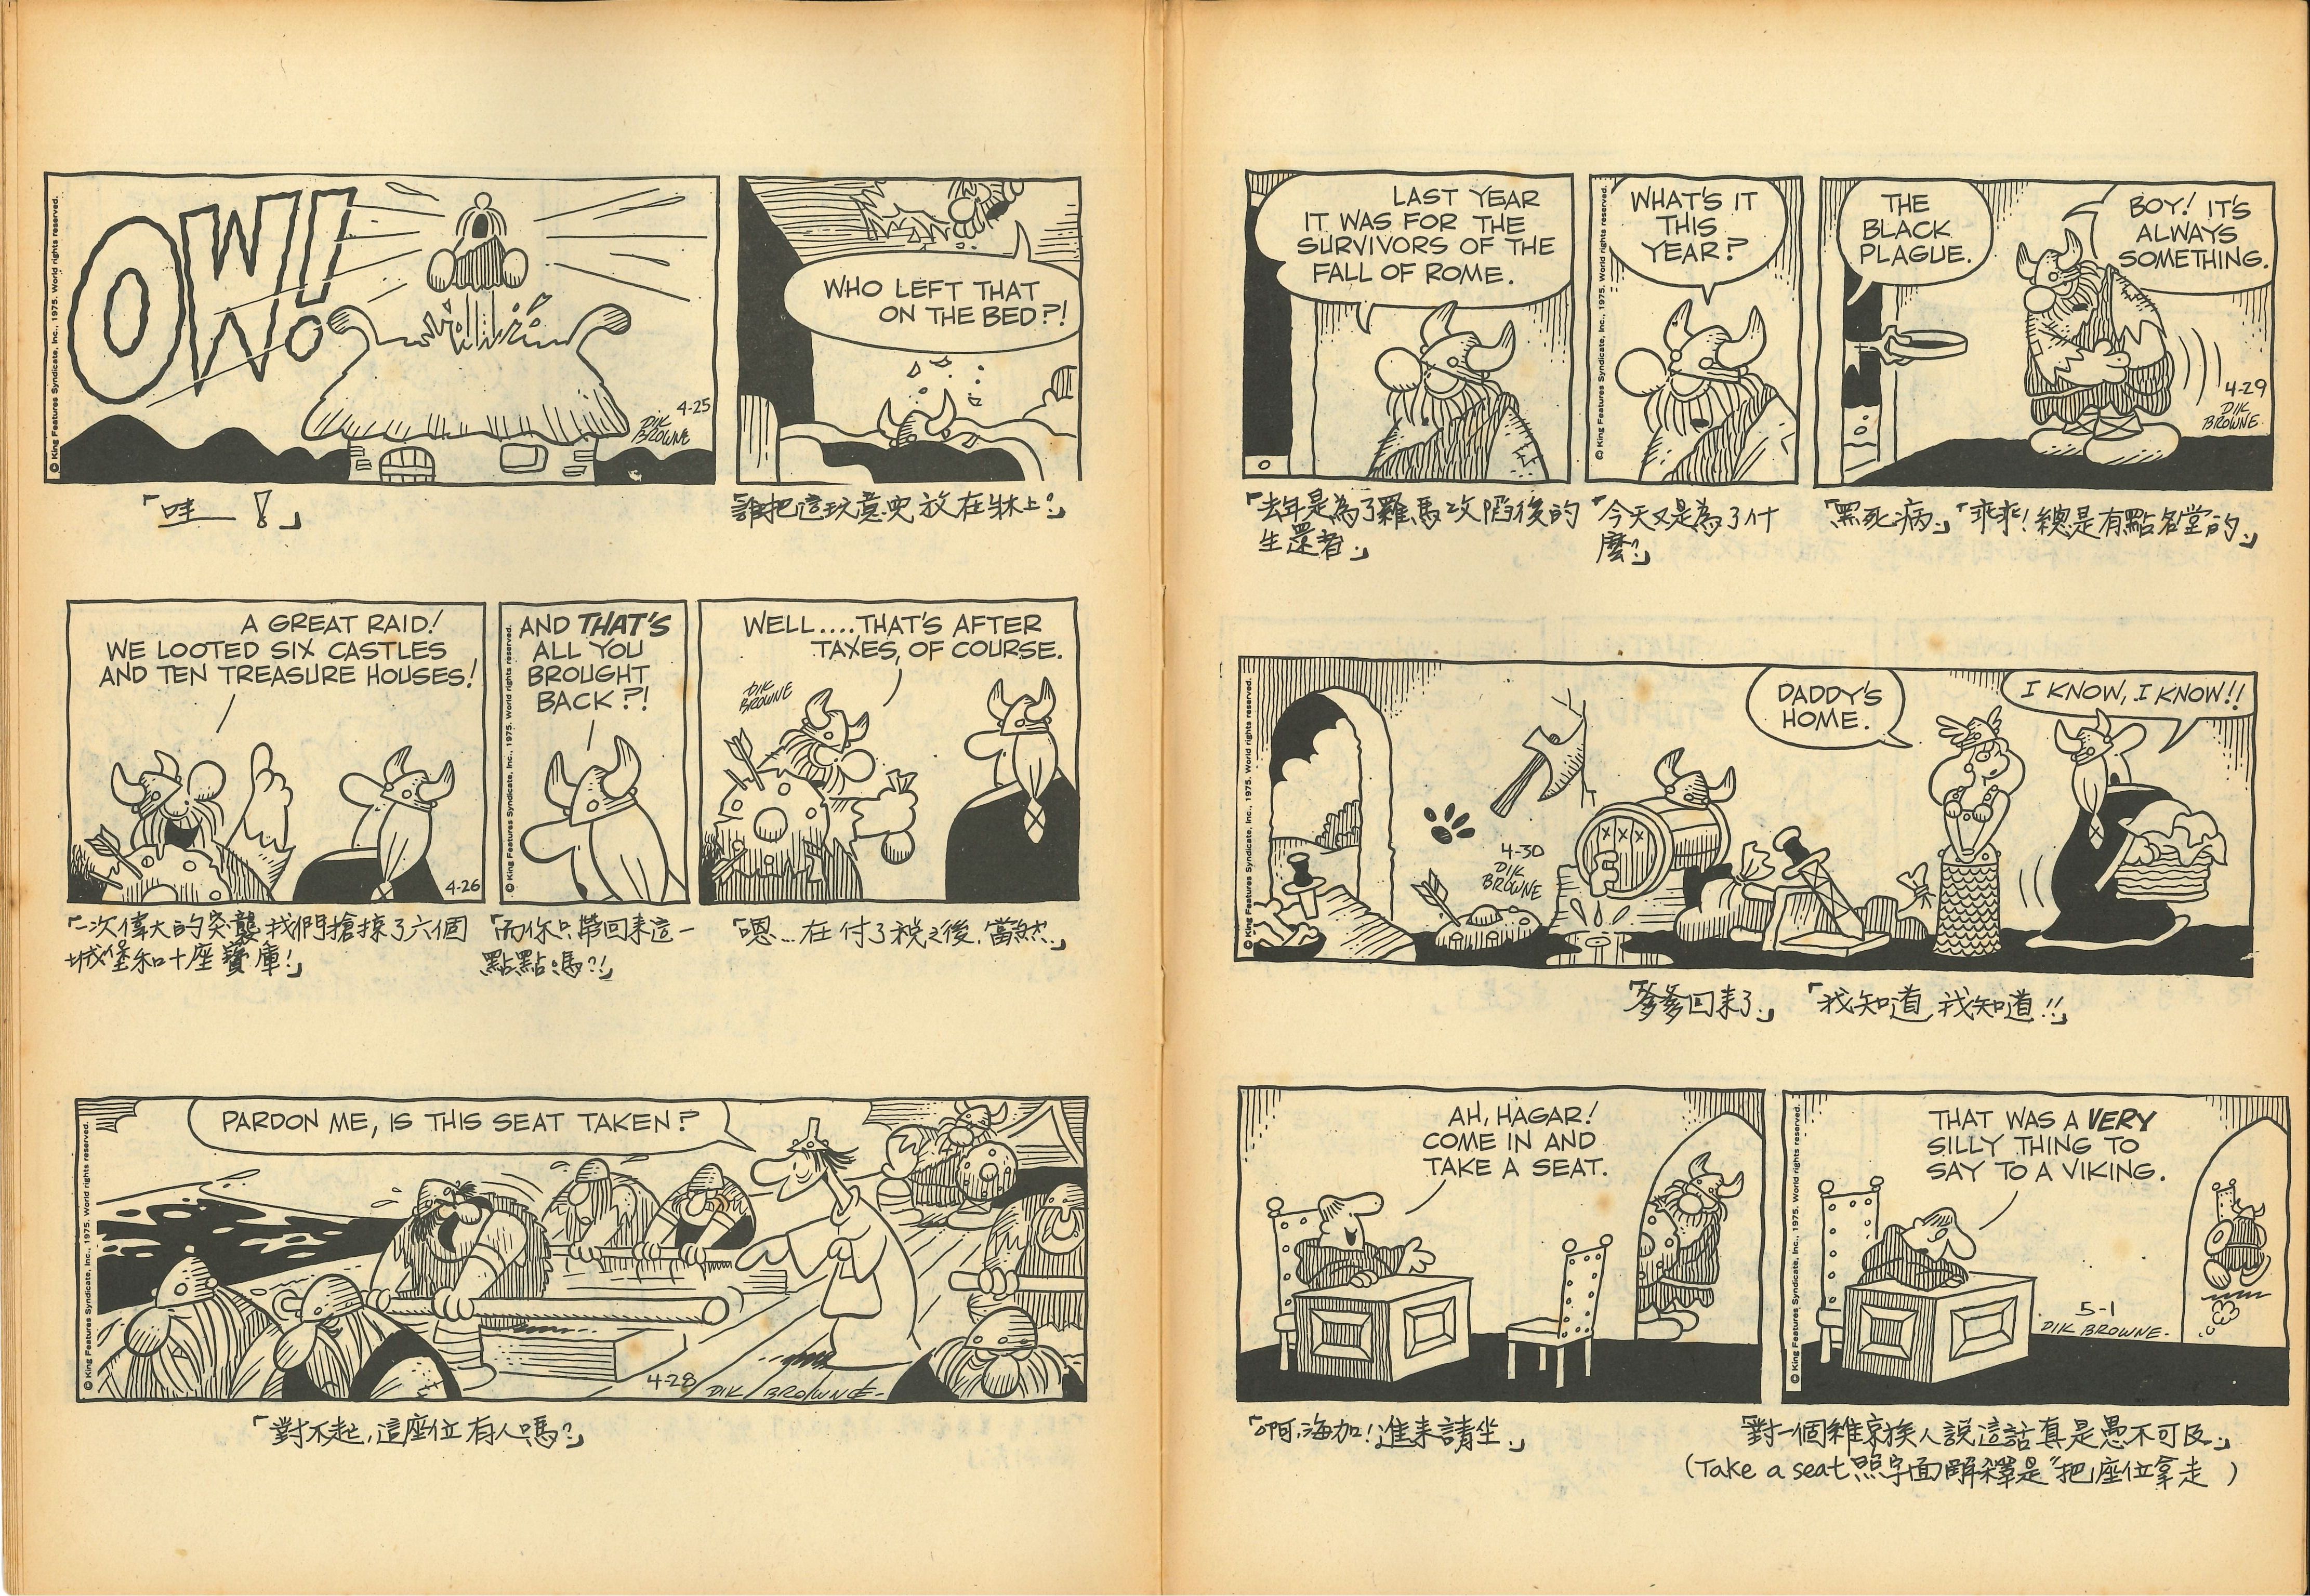 © King Features Syndicate, Inc., 1975. World rights reserved.
OW!
4-25
DIK
BROWNE
WHO LEFT THAT
ON THE BED?!
「哇—！」
「誰把這玩意兒放在牀上?」
A GREAT RAID!
WE LOOTED SIX CASTLES
AND TEN TREASURE HOUSES!
4-26
© King Features Syndicate, Inc., 1975. World rights reserved.
AND THAT'S
ALL YOU
BROUGHT
BACK?!
WELL....THAT'S AFTER
TAXES, OF COURSE.
DIK
BROWNE
「一次偉大的突襲,我們搶掠了六個
城堡和十座寶庫!」
「而你只帶回來這一
點點嗎?!」
「嗯...在付了稅之後,當然.」
© King Features Syndicate, Inc., 1975. World rights reserved.
PARDON ME, IS THIS SEAT TAKEN?
4-28
DIK BROWNE-
「對不起,這座位有人嗎?」
LAST YEAR
IT WAS FOR THE
SURVIVORS OF THE
FALL OF ROME.
© King Features Syndicate, Inc., 1975. World rights reserved.
WHAT'S IT
THIS
YEAR?
THE
BLACK
PLAGUE.
BOY! IT'S
ALWAYS
SOMETHING.
4-29
DIK
BROWNE
「去年是為了羅馬攻陷後的
生還者.」
「今天又是為了什
麼?」
「黑死病」「乖乖!總是有點名堂的.」
© King Features Syndicate, Inc., 1975. World rights reserved.
4-30
DIK
BROWNE
DADDY'S
HOME.
I KNOW, I KNOW!!
「爹爹回來了.」「我知道,我知道!!」
AH, HAGAR!
COME IN AND
TAKE A SEAT.
© King Features Syndicate, Inc., 1975. World rights reserved.
THAT WAS A VERY
SILLY THING TO
SAY TO A VIKING.
5-1
DIK BROWNE-
「啊,海加!進來請坐.」
「對一個維京族人說這話真是愚不可及.」
(Take a seat照字面解釋是"把座位拿走)